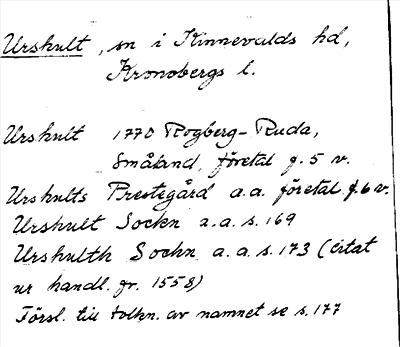 Urshult, sn i Kinnevalds hd,
Kronobergs l.
Urshult 1770 Rogberg-Ruda,
Småland, företal f. 5 v.
Urshults Prestegård a.a. företal f. 6 v.
Urshult Sockn a.a. s. 169
Urshulth Sochn a.a. s. 173 (citat
ur handl. fr. 1558)
Försl. till tolkn. av namnet se s. 177